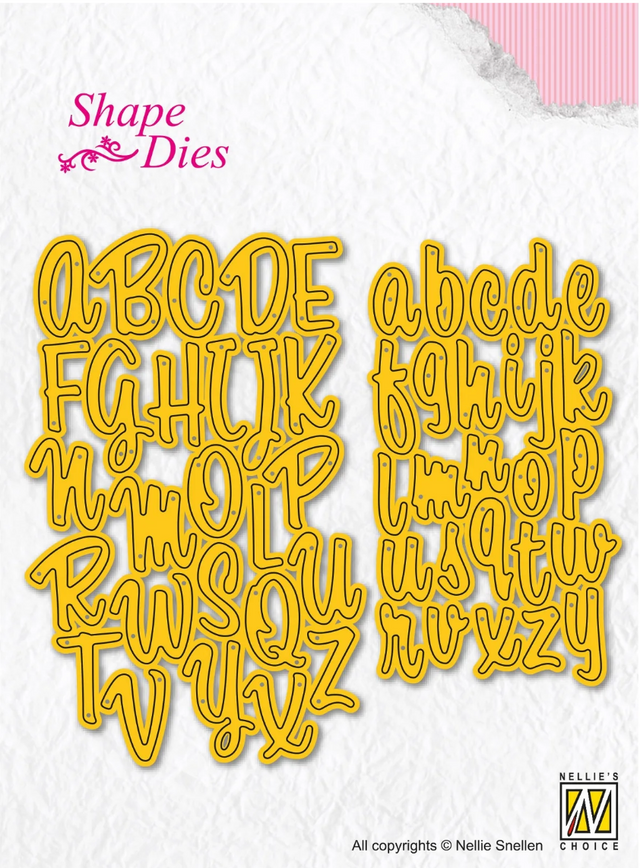 Shape
Dies
A B C D E
F G H I J K
N M O L P
R W S Q U
T V Y X Z
a b c d e
f g h i j k
l m n o p
u s q t w
r v x z y
NELLIE'S
N
CHOICE
All copyrights © Nellie Snellen